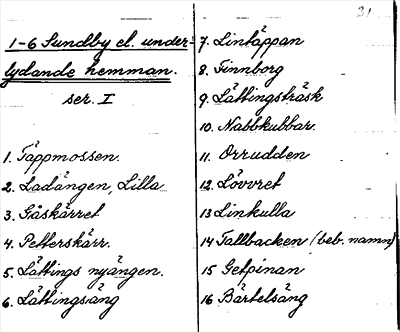 31
1-6 Sundby el. under-
lydande hemman.
ser. I
1. Täppmossen.
2. Ladängen, Lilla
3. Gåskärret
4. Petterskärr.
5. Lättings nyängen.
6. Lättingsäng
7. Lintäppan
8. Finnborg
9. Lättingsträsk
10. Nabbkubbar.
11. Orrudden
12. Lövvret
13 Linkulla
14 Tallbacken (beb. namn)
15 Getpinan
16 Bärtelsäng